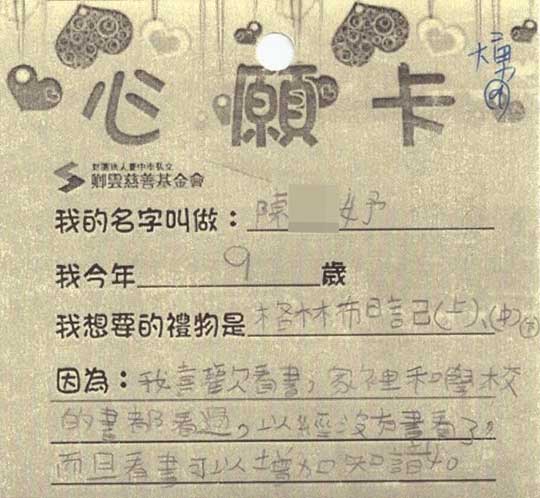 心願卡
財團法人臺中市私立
鄉雲慈善基金會
我的名字叫做：陳 妤
我今年 9 歲
我想要的禮物是 格林布日記(上)、(中)(下)
因為：我喜歡看書，家裡和學校
的書都看過，以經沒有書看了，
而且看書可以增加知識